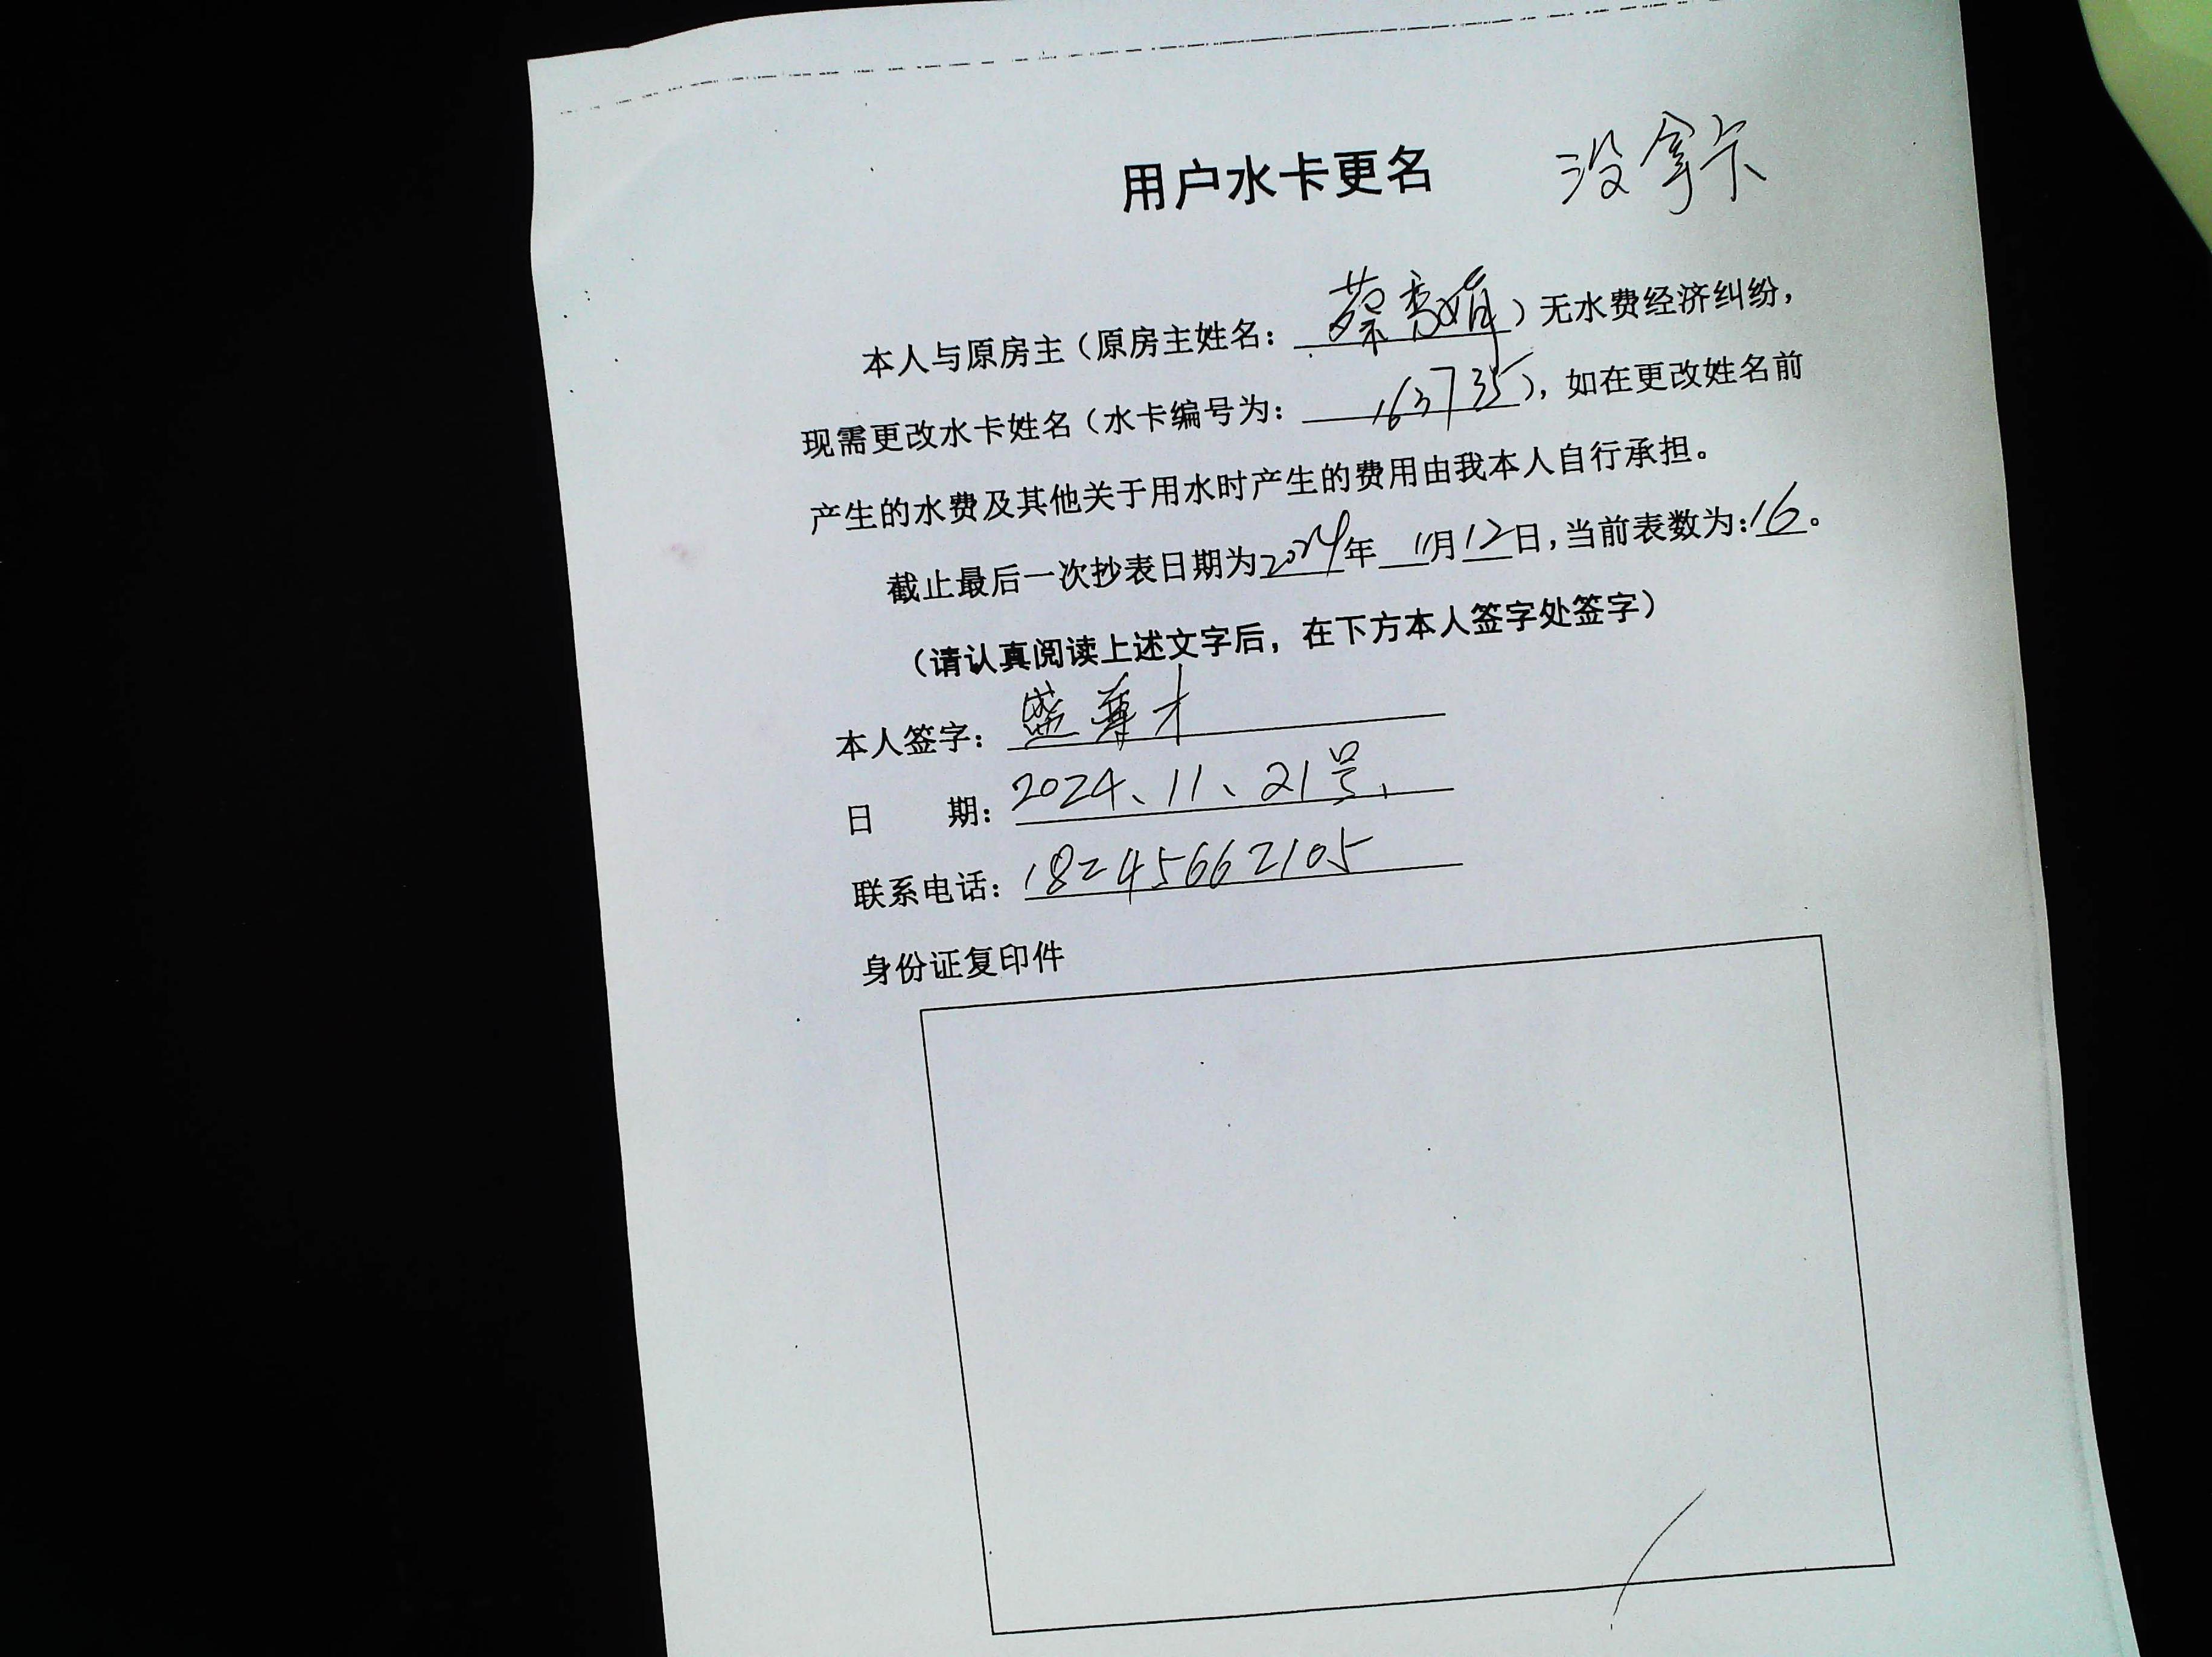 用户水卡更名 没拿卡
本人与原房主（原房主姓名：蔡秀娟）无水费经济纠纷，
现需更改水卡姓名（水卡编号为：163735），如在更改姓名前
产生的水费及其他关于用水时产生的费用由我本人自行承担。
截止最后一次抄表日期为2024年11月12日，当前表数为：16。
（请认真阅读上述文字后，在下方本人签字处签字）
本人签字：盛 才
日 期：2024、11、21号、
联系电话：18245662105
身份证复印件